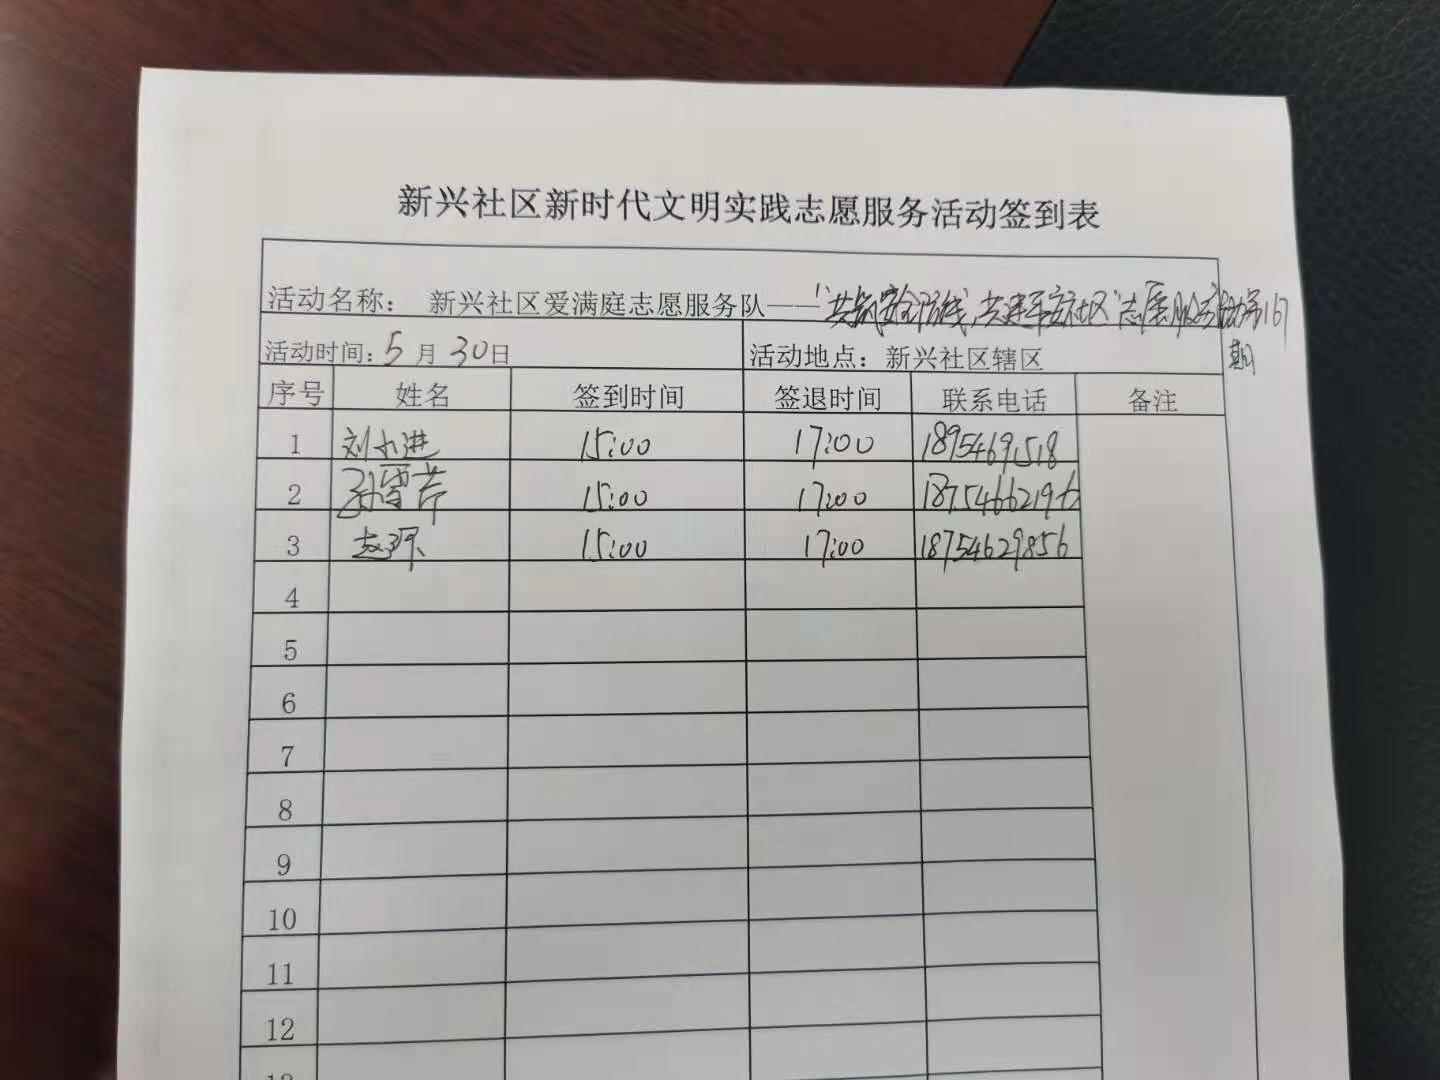 新兴社区新时代文明实践志愿服务活动签到表
活动名称： 新兴社区爱满庭志愿服务队——“共筑安全防线，共建平安社区”志愿服务活动第167
期
活动时间：5月30日 活动地点：新兴社区辖区
序号 姓名 签到时间 签退时间 联系电话 备注
1 15:00 17:00 18954691518
2 孙雪芹 15:00 17:00 18754662196
3 15:00 17:00 18754629856
4
5
6
7
8
9
10
11
12
13